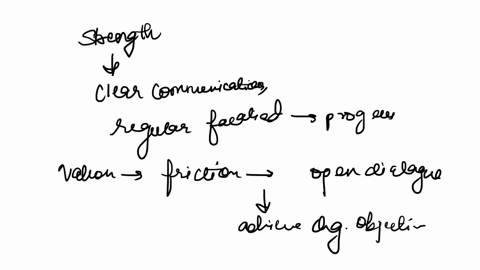 strength
↓
clear communication,
regular → progress
→ friction → open dialogue
↓
achieve Org. objective